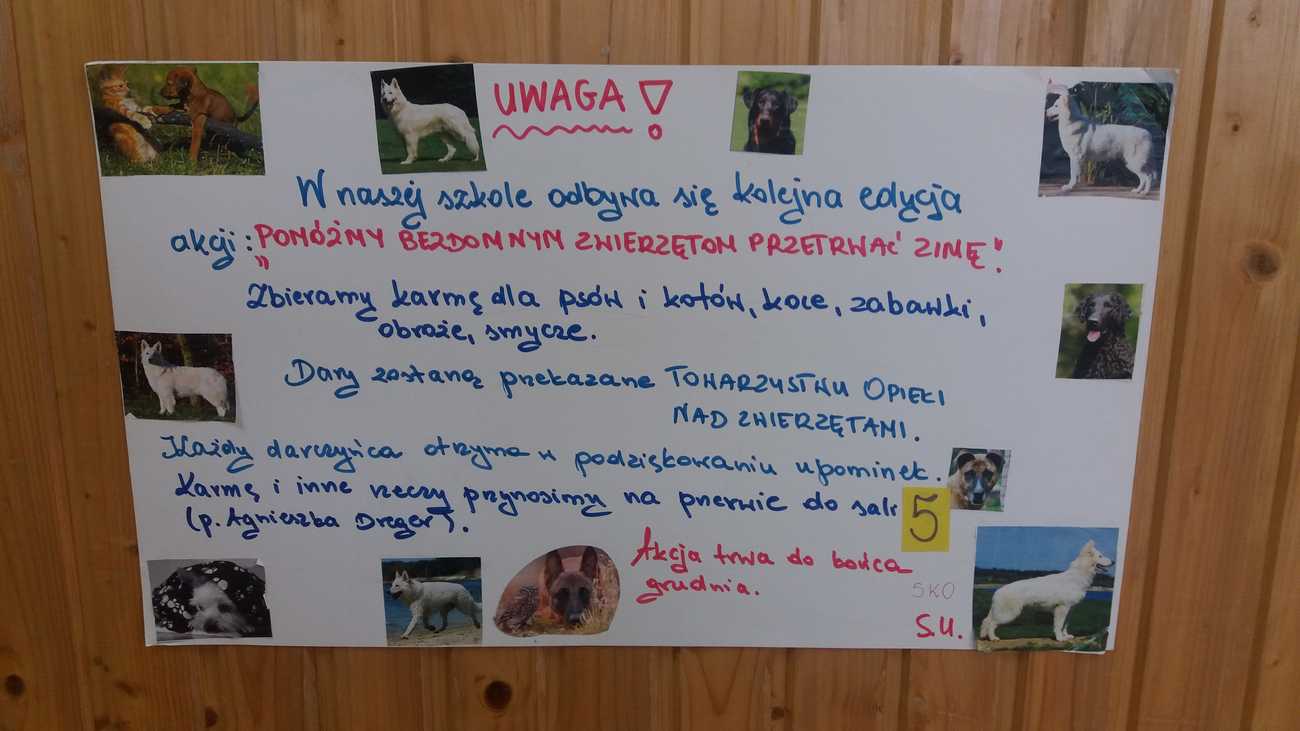 UWAGA!
W naszej szkole odbywa się kolejna edycja
akcji: "POMÓŻMY BEZDOMNYM ZWIERZĘTOM PRZETRWAĆ ZIMĘ".
Zbieramy karmę dla psów i kotów, koce, zabawki,
obroże, smycze.
Dary zostaną przekazane TOWARZYSTWU OPIEKI
NAD ZWIERZĘTAMI.
Każdy darczyńca otrzyma w podziękowaniu upominek.
Karmę i inne rzeczy przynosimy na przerwie do sali 5
(p. Agnieszka Dreger).
Akcja trwa do końca
grudnia.
SKO
S.U.